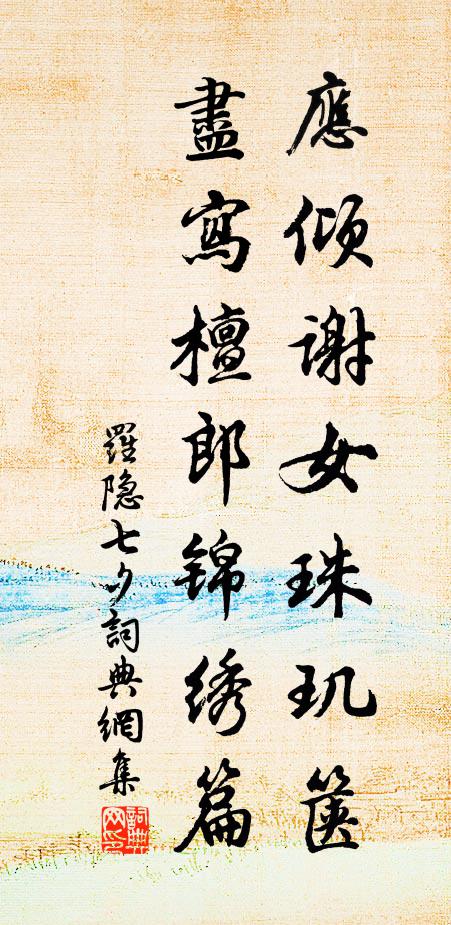 應傾谢女珠玑箧
盡寫檀郎锦绣篇
羅隐七夕詞典網集
詞典网印